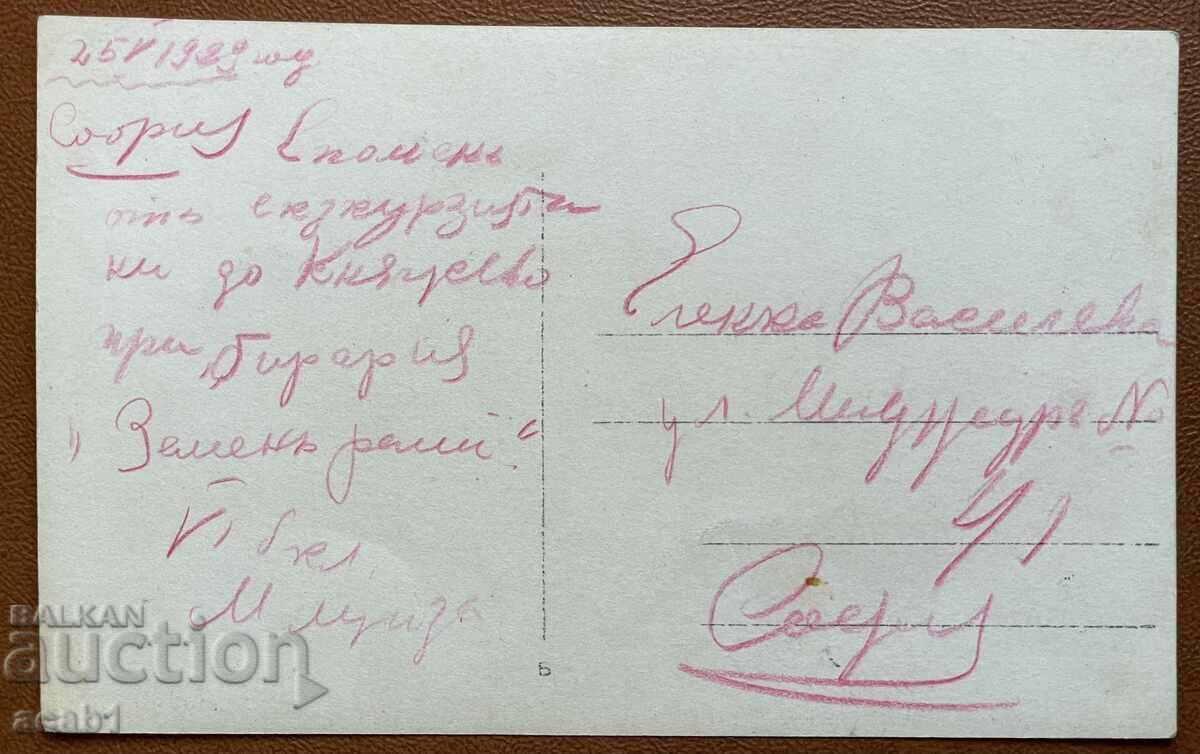 25 V 1929 год
София Спомень
отъ екзкурзията
ни до Княжево
при „Бирария
„Земенъ рай“.
VI б кл
М
Пенка Василева
ул. №
41
София
Б
BALKAN
auction
aeab1